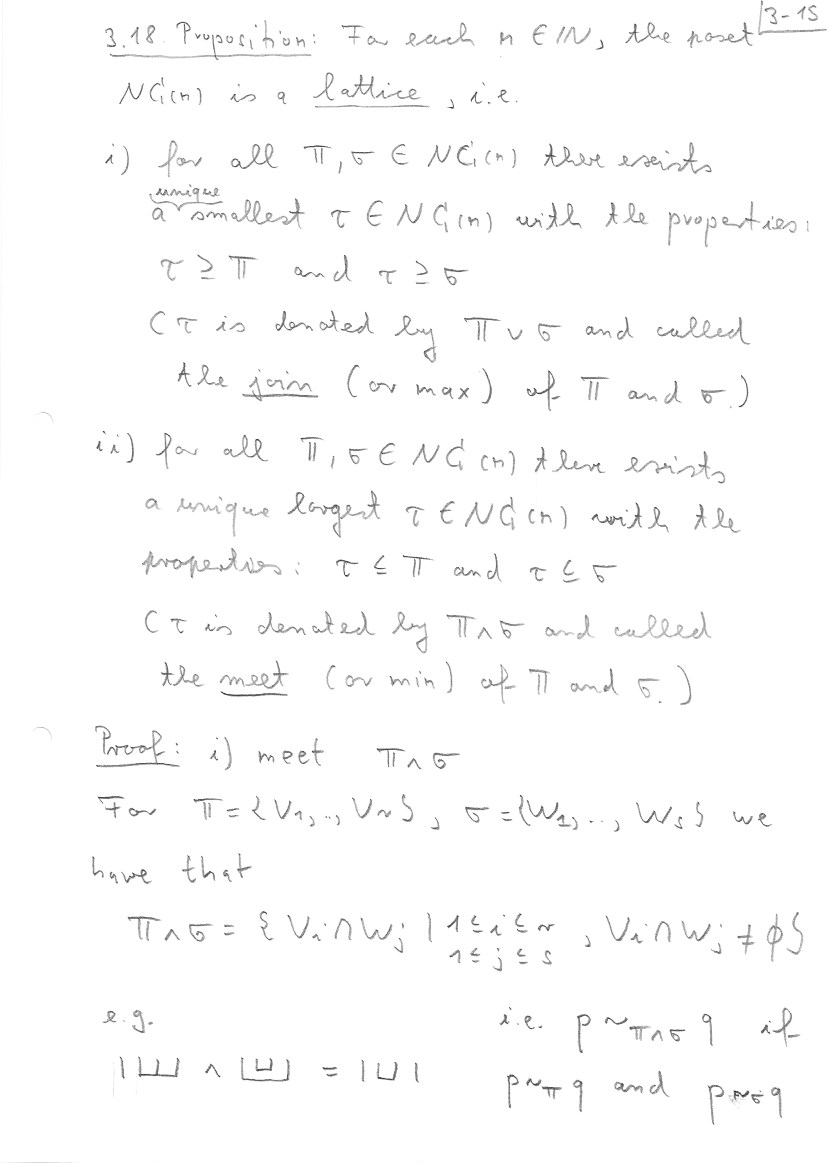 3-15
3.18. Proposition: For each n ∈ ℕ, the poset
NC(n) is a lattice, i.e.
i) for all π, σ ∈ NC(n) there exists
unique
a smallest τ ∈ NC(n) with the properties:
τ ≥ π and τ ≥ σ
(τ is denoted by π ∨ σ and called
the join (or max) of π and σ.)
ii) for all π, σ ∈ NC(n) there exists
a unique largest τ ∈ NC(n) with the
properties: τ ≤ π and τ ≤ σ
(τ is denoted by π ∧ σ and called
the meet (or min) of π and σ.)
Proof: i) meet π ∧ σ
For π = {V₁, .., Vᵣ}, σ = {W₁, .., Wₛ} we
have that
π ∧ σ = { Vᵢ ∩ Wⱼ | 1 ≤ i ≤ r, 1 ≤ j ≤ s, Vᵢ ∩ Wⱼ ≠ ∅}
e.g.
i.e. p ~π∧σ q if
p ~π q and p ~σ q